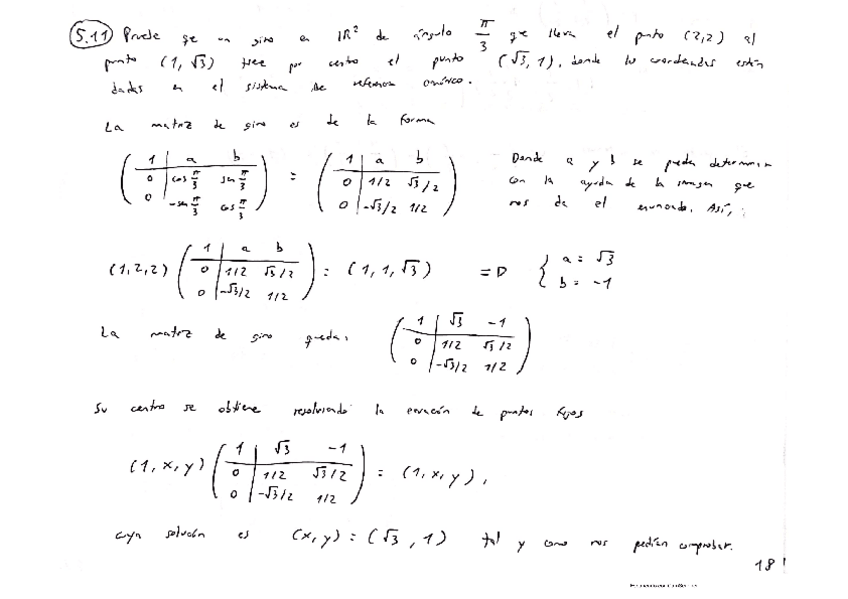 5.11 Pruebe que un giro en IR² de ángulo π/3 que lleva el punto (2,2) al
punto (1, √3) tiene por centro el punto (√3, 1), donde las coordenadas están
dadas en el sistema de referencia canónico.
La matriz de giro es de la forma
( 1 | a b ; 0 | cos π/3 sen π/3 ; 0 | -sen π/3 cos π/3 ) = ( 1 | a b ; 0 | 1/2 √3/2 ; 0 | -√3/2 1/2 )
Donde a y b se pueden determinar
con la ayuda de la imagen que
nos da el enunciado. Así,
(1,2,2) ( 1 | a b ; 0 | 1/2 √3/2 ; 0 | -√3/2 1/2 ) = (1, 1, √3) => { a = √3 ; b = -1
La matriz de giro queda: ( 1 | √3 -1 ; 0 | 1/2 √3/2 ; 0 | -√3/2 1/2 )
Su centro se obtiene resolviendo la ecuación de puntos fijos
(1, x, y) ( 1 | √3 -1 ; 0 | 1/2 √3/2 ; 0 | -√3/2 1/2 ) = (1, x, y),
cuya solución es (x, y) = (√3, 1) tal y como nos pedían comprobar.
18